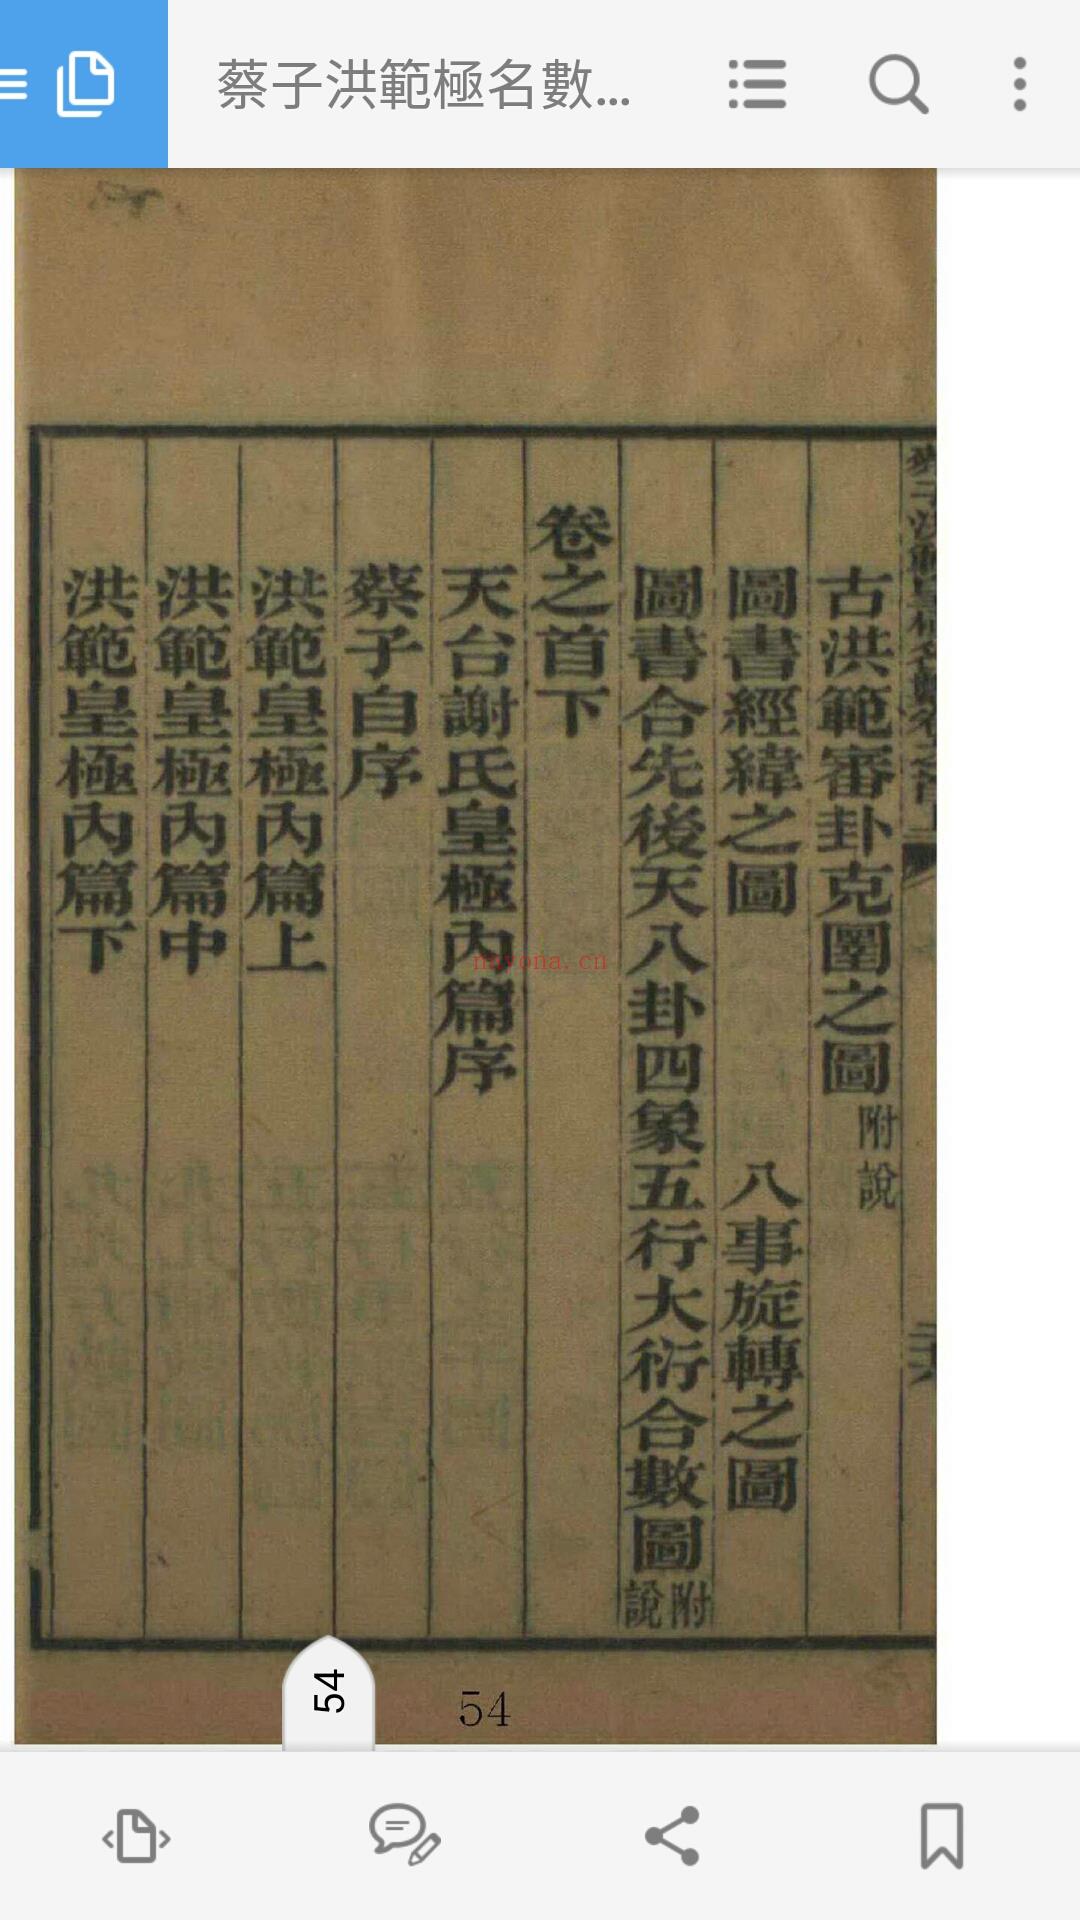 蔡子洪範極名數...
古洪範審卦克圛之圖 附說
圖書經緯之圖 八事旋轉之圖
圖書合先後天八卦四象五行大衍合數圖 附說
卷之首下
天台謝氏皇極內篇序
蔡子自序
洪範皇極內篇上
洪範皇極內篇中
洪範皇極內篇下
nayona.cn
54
54